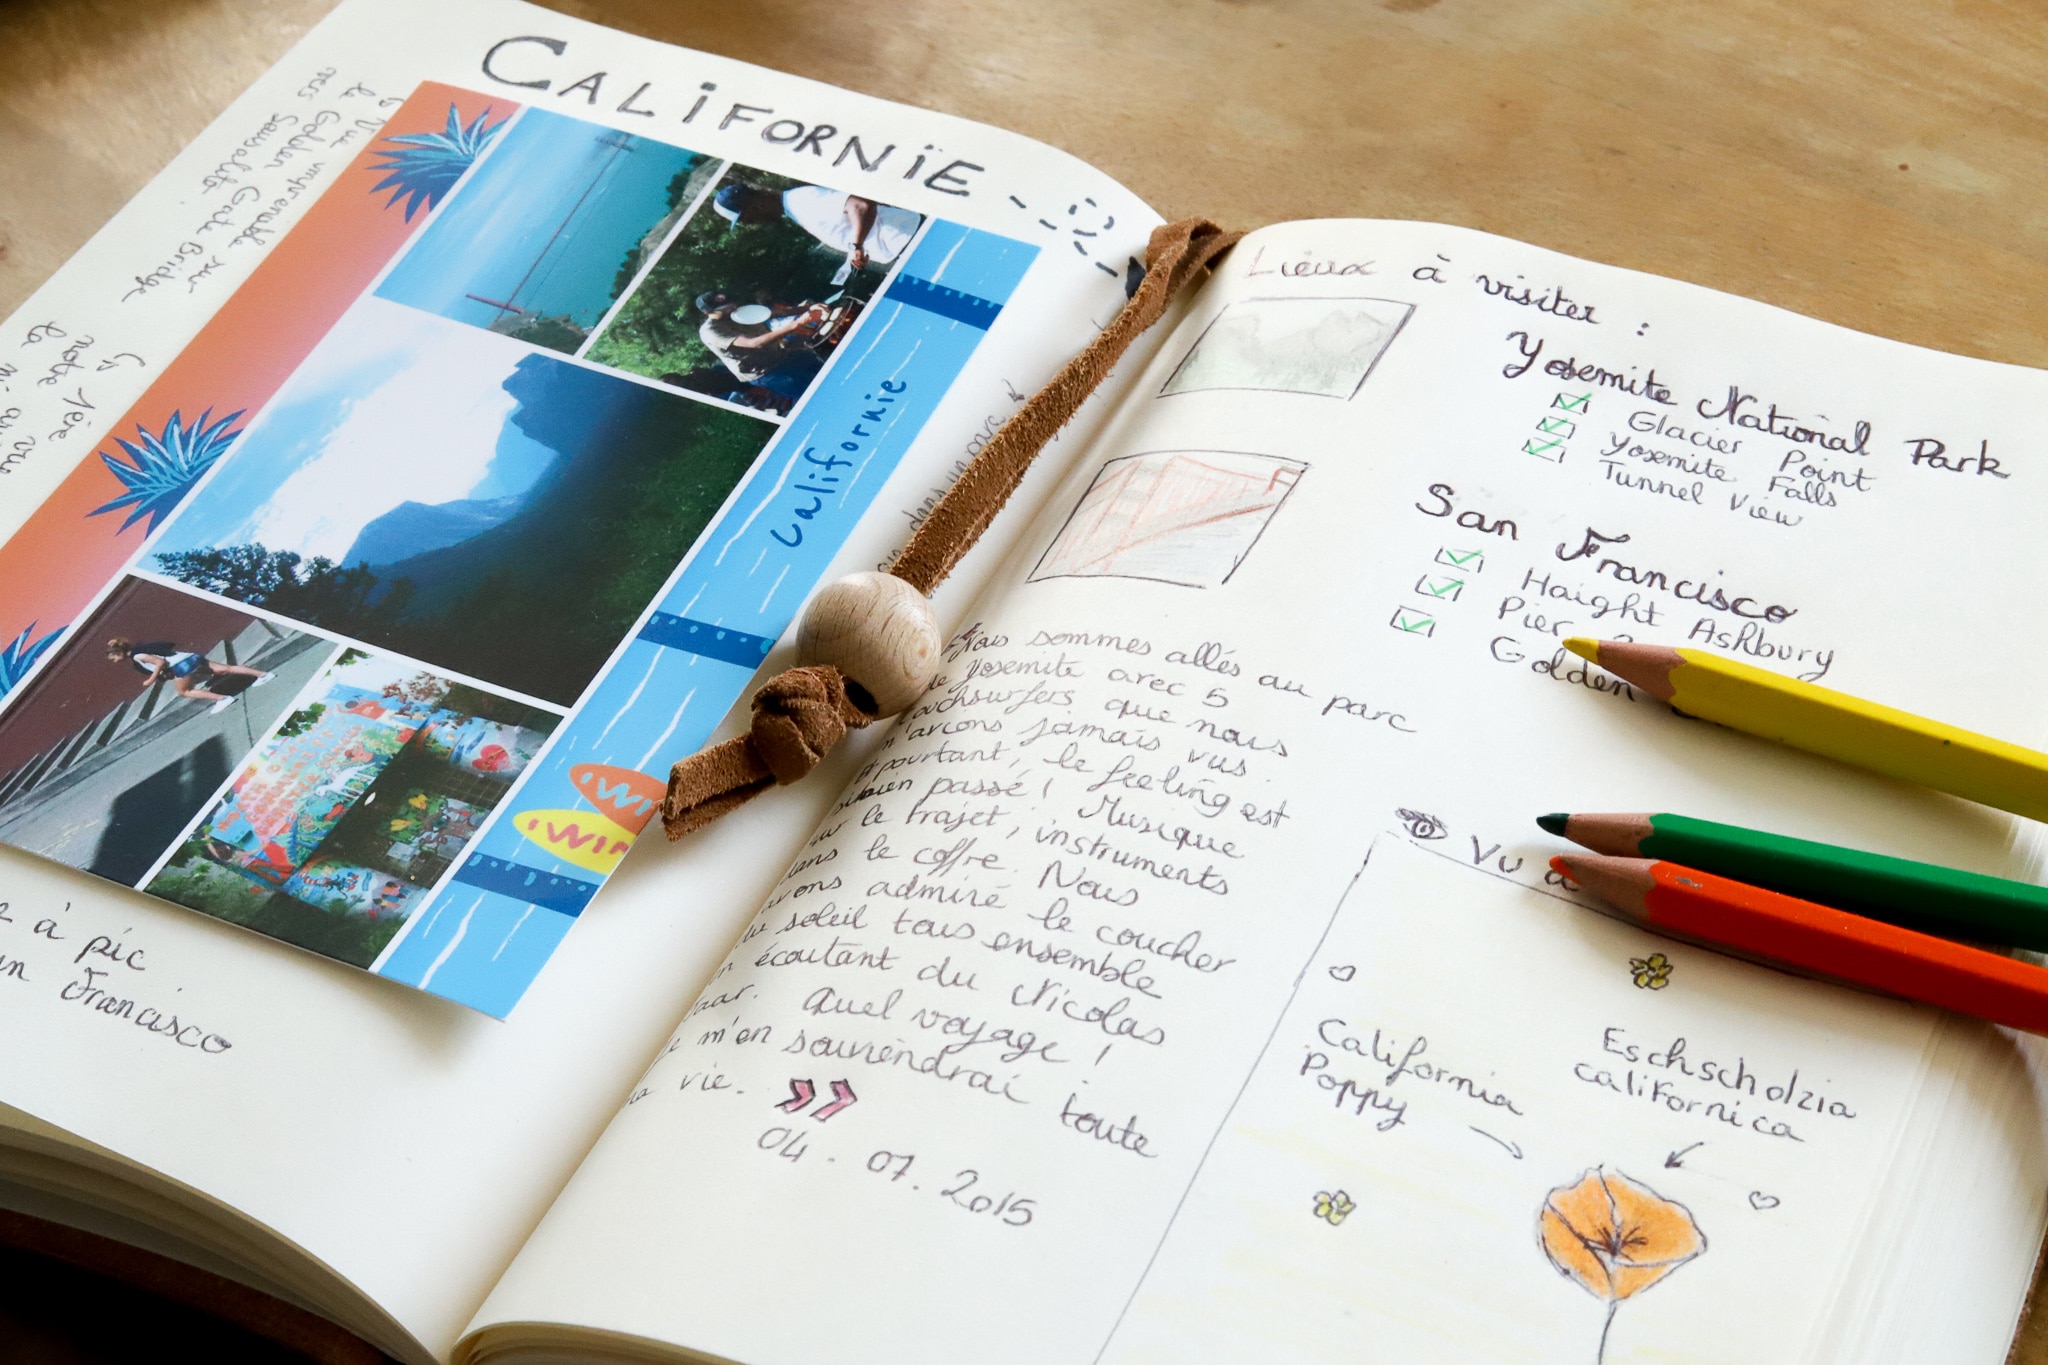 CALIFORNIE
↳ Vue imprenable sur
le Golden Gate Bridge
vers Sausalito
↳ 1ère
notre vue
la
Californie
dans un parc
iWi
iWiN
à pic
Francisco
Lieux à visiter :
Yosemite National Park
☑ Glacier Point
☑ Yosemite Falls
☑ Tunnel View
San Francisco
☑ Haight Ashbury
☑ Pier
☑ Golden
Nous sommes allés au parc
de Yosemite avec 5
couchsurfers que nous
n'avions jamais vus.
Et pourtant, le feeling est
si bien passé ! Musique
sur le trajet, instruments
dans le coffre. Nous
avons admiré le coucher
du soleil tous ensemble
en écoutant du Nicolas
Jaar. Quel voyage !
Je m'en souviendrai toute
la vie.
04.07.2015
Vu à
California
Poppy
Eschscholzia
californica